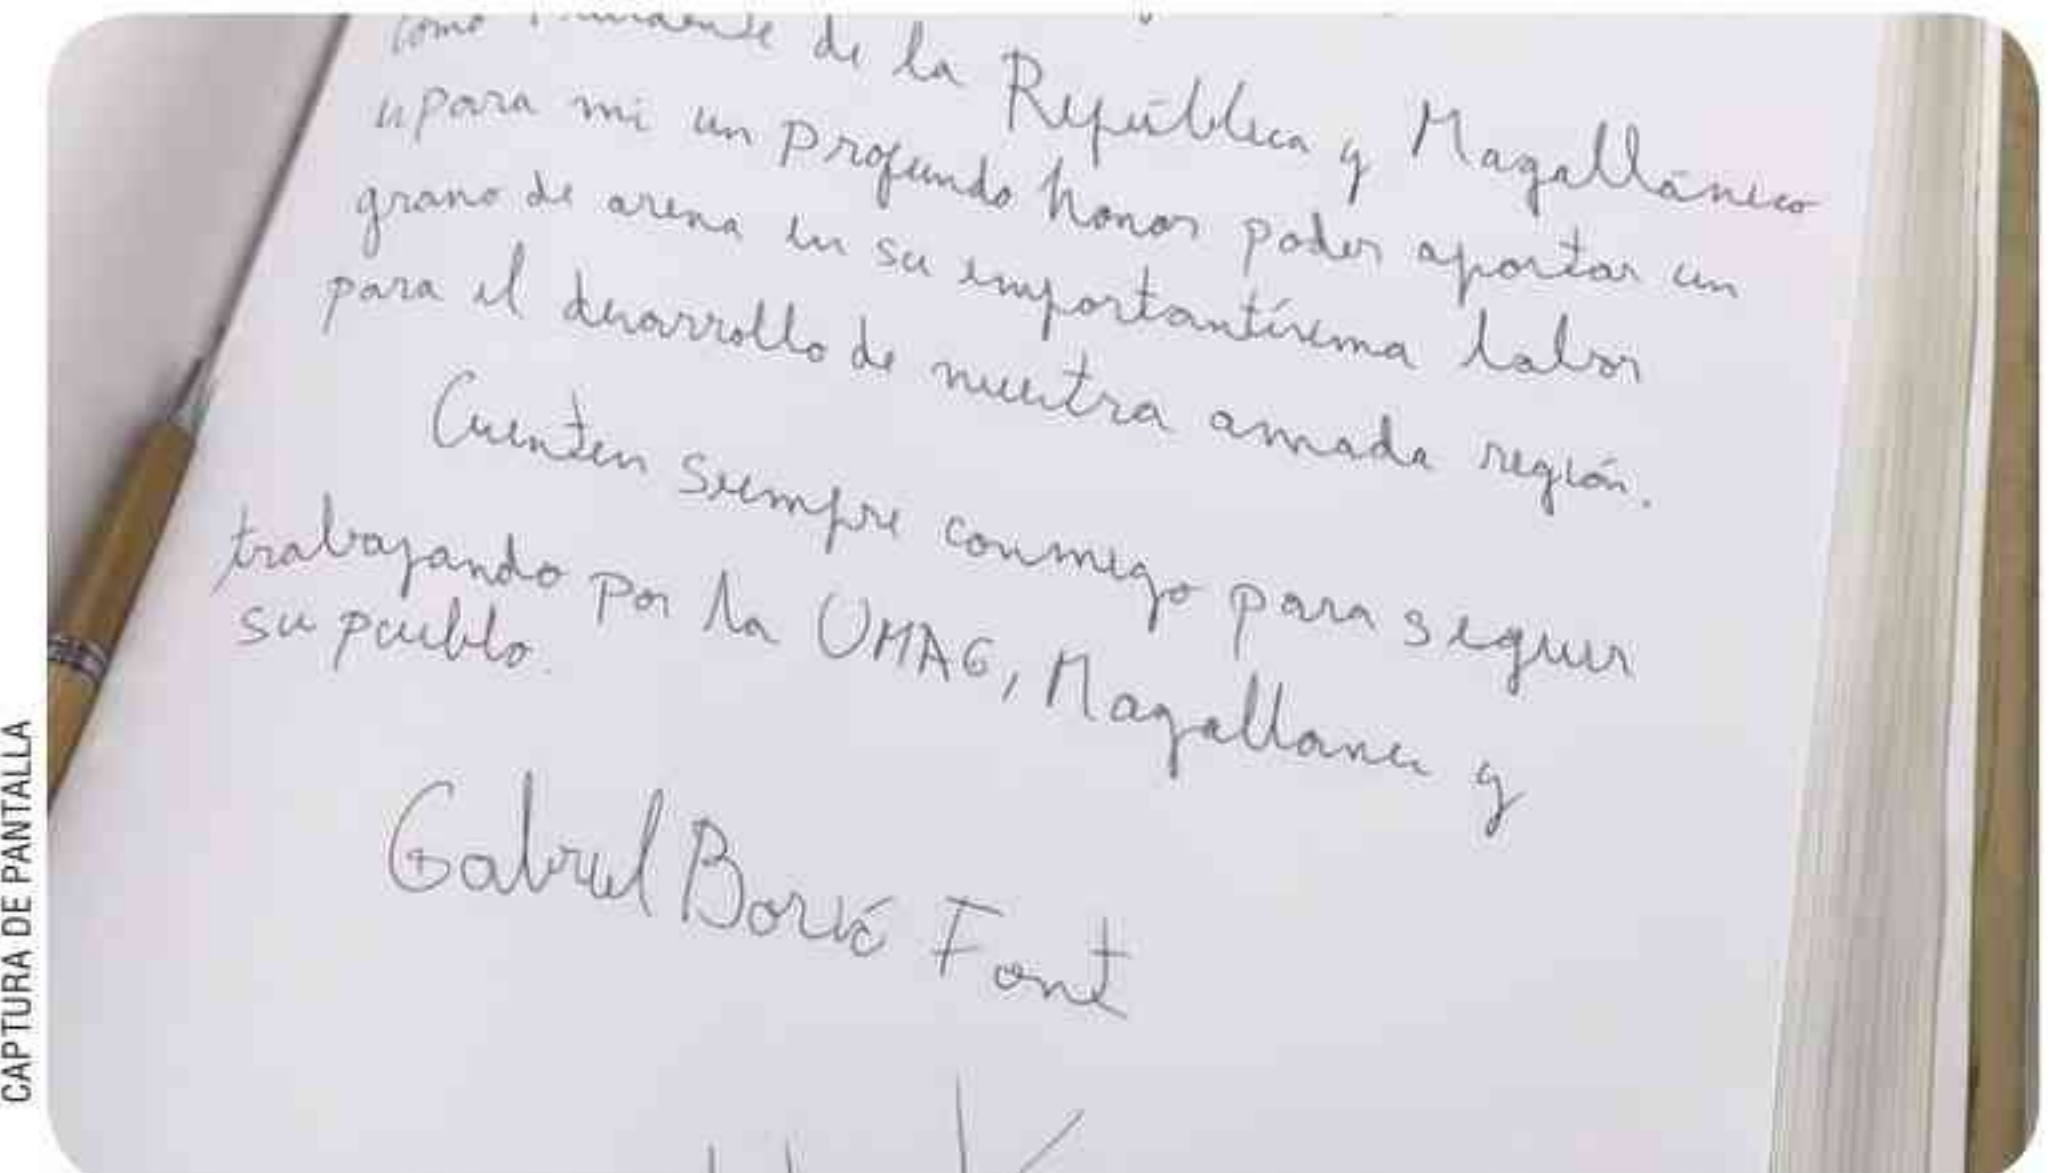 como Presidente de la República y Magallánico
es para mi un profundo honor poder aportar un
grano de arena en su importantísima labor
para el desarrollo de nuestra amada región.
Cuenten siempre conmigo para seguir
trabajando por la UMAG, Magallanes y
su pueblo.
Gabriel Boric Font
CAPTURA DE PANTALLA